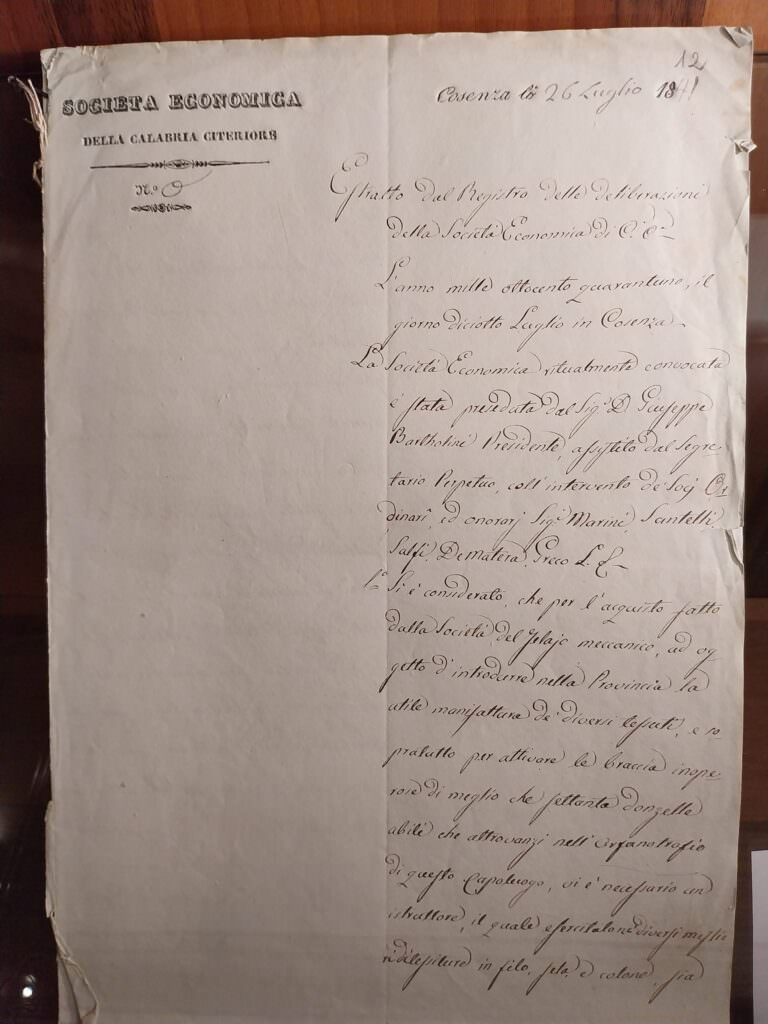 12
SOCIETA ECONOMICA
DELLA CALABRIA CITERIORE
N.º
Cosenza li 26 Luglio 1841
Estratto dal Registro delle deliberazioni
della Società Economica di C. C.ª
L'anno mille ottocento quarantuno, il
giorno diciotto Luglio in Cosenza
La Società Economica ritualmente convocata
è stata preseduta dal Sig.r D. Giuseppe
Bartholini Presidente, assistito dal Segre
tario Perpetuo, coll'intervento de' Socj Or
dinarî, ed onorarj Sig.i Marini, Scntelli
Salfi, Dematera, Greco L. 
1.º Si è considerato, che per l'acquisto fatto
dalla Società del Telajo meccanico, ad og
getto d'introdurre nella Provincia la
utile manifattura de' diversi tessuti, e so
pratutto per attivare le braccia inope
rose di meglio che settanta donzelle
abili che altrovanzi nell'orfanotrofio
di questo Capoluogo, vi è necessario un
istruttore, il quale diversi mestie
ri di tessiture in filo, seta, e cotone, sia